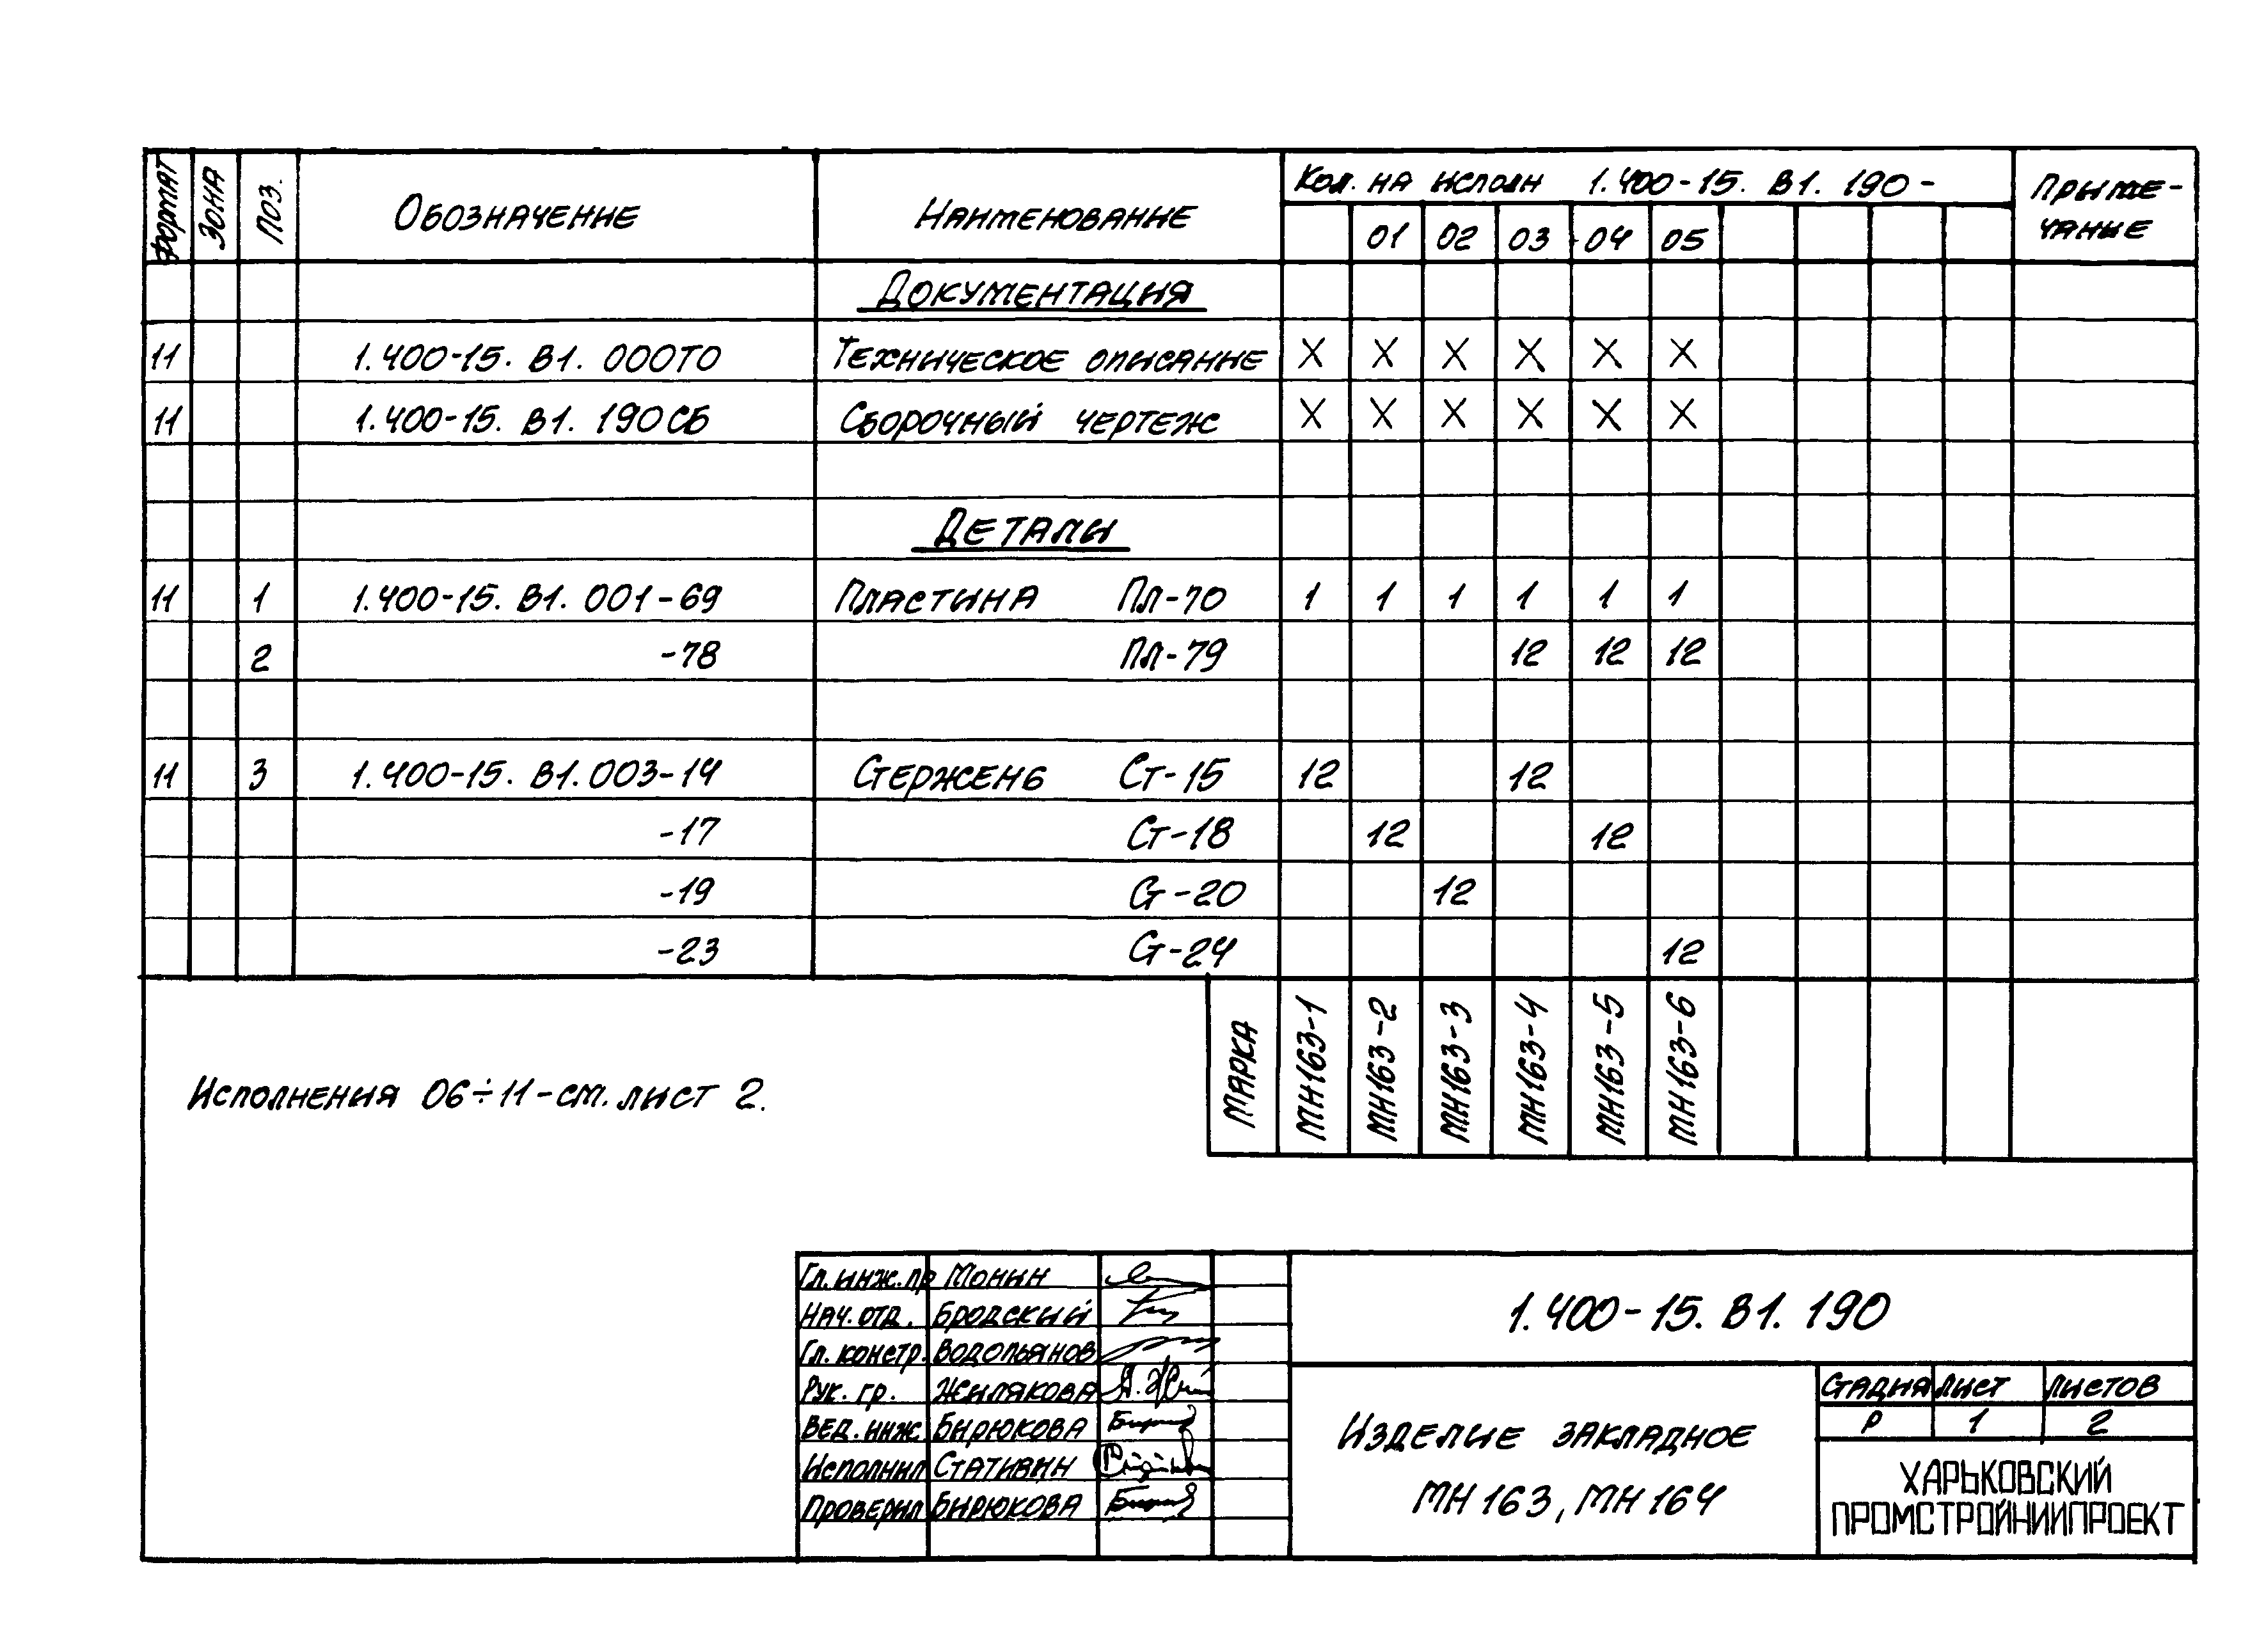 Формат Зона Поз. Обозначение Наименование Кол. на исполн 1.400-15. В1. 190- Приме-
чание
01 02 03 04 05
Документация
11 1.400-15. В1. 000ТО Техническое описание X X X X X X
11 1.400-15. В1. 190СБ Сборочный чертеж X X X X X X
Детали
11 1 1.400-15. В1. 001-69 Пластина Пл-70 1 1 1 1 1 1
2 -78 Пл-79 12 12 12
11 3 1.400-15. В1. 003-14 Стержень Ст-15 12 12
-17 Ст-18 12 12
-19 Ст-20 12
-23 Ст-24 12
Марка МН163-1 МН163-2 МН163-3 МН163-4 МН163-5 МН163-6
Исполнения 06÷11-см. лист 2.
Гл. инж. пр Монин
Нач. отд. Бродский
Гл. констр. Водопьянов
Рук. гр. Жилякова
Вед. инж. Бирюкова
Исполнил Стативин
Проверил Бирюкова
1.400-15. В1. 190
Изделие закладное
МН 163, МН 164
Стадия Лист Листов
Р 1 2
ХАРЬКОВСКИЙ
ПРОМСТРОЙНИИПРОЕКТ